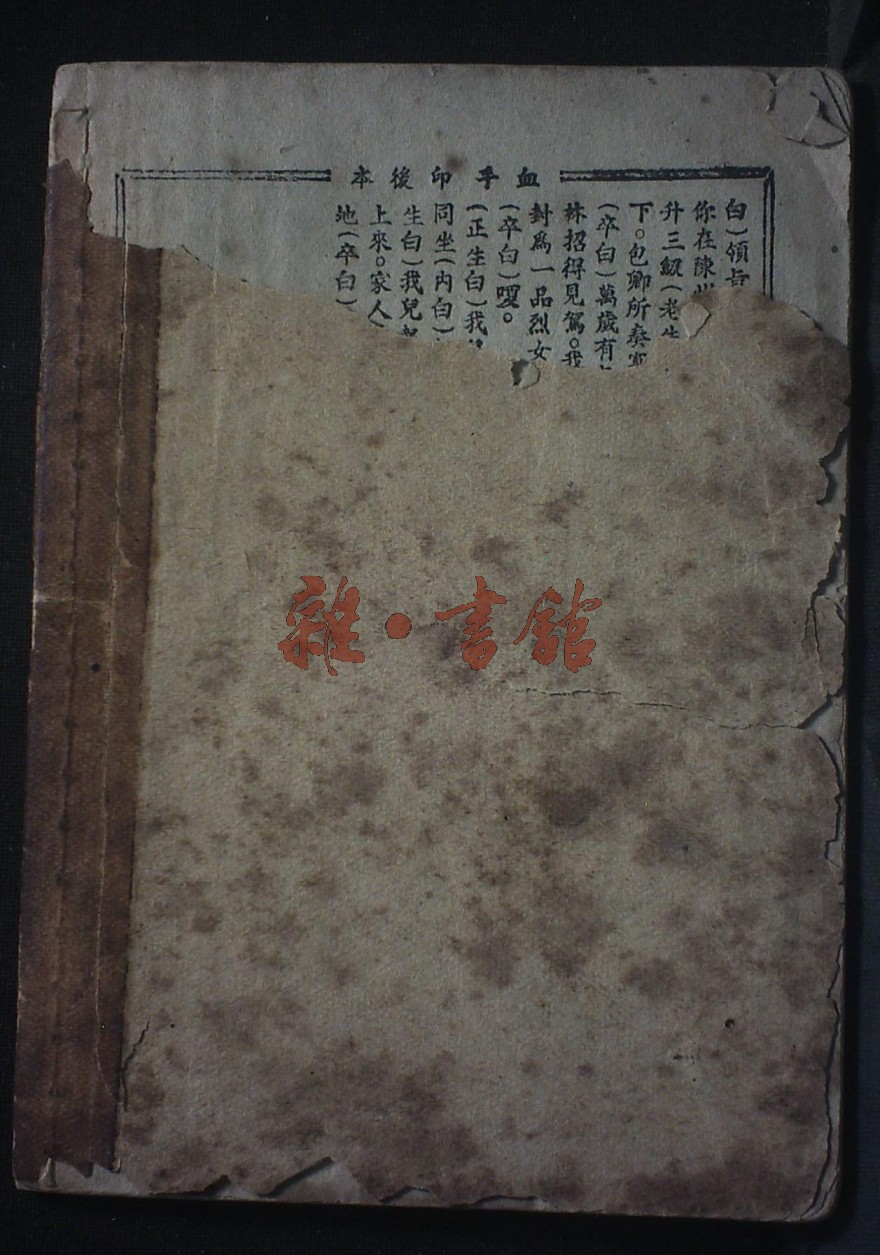 血手印後本
白)領旨
你在陳州
升三級(老生
下。包卿所奏
(卒白)萬歲有
林招得見駕。我
封爲一品烈女
(卒白)嗄。
(正生白)我
同坐(內白)
生白)我兒
上來。家人
地(卒白)
雜·書館